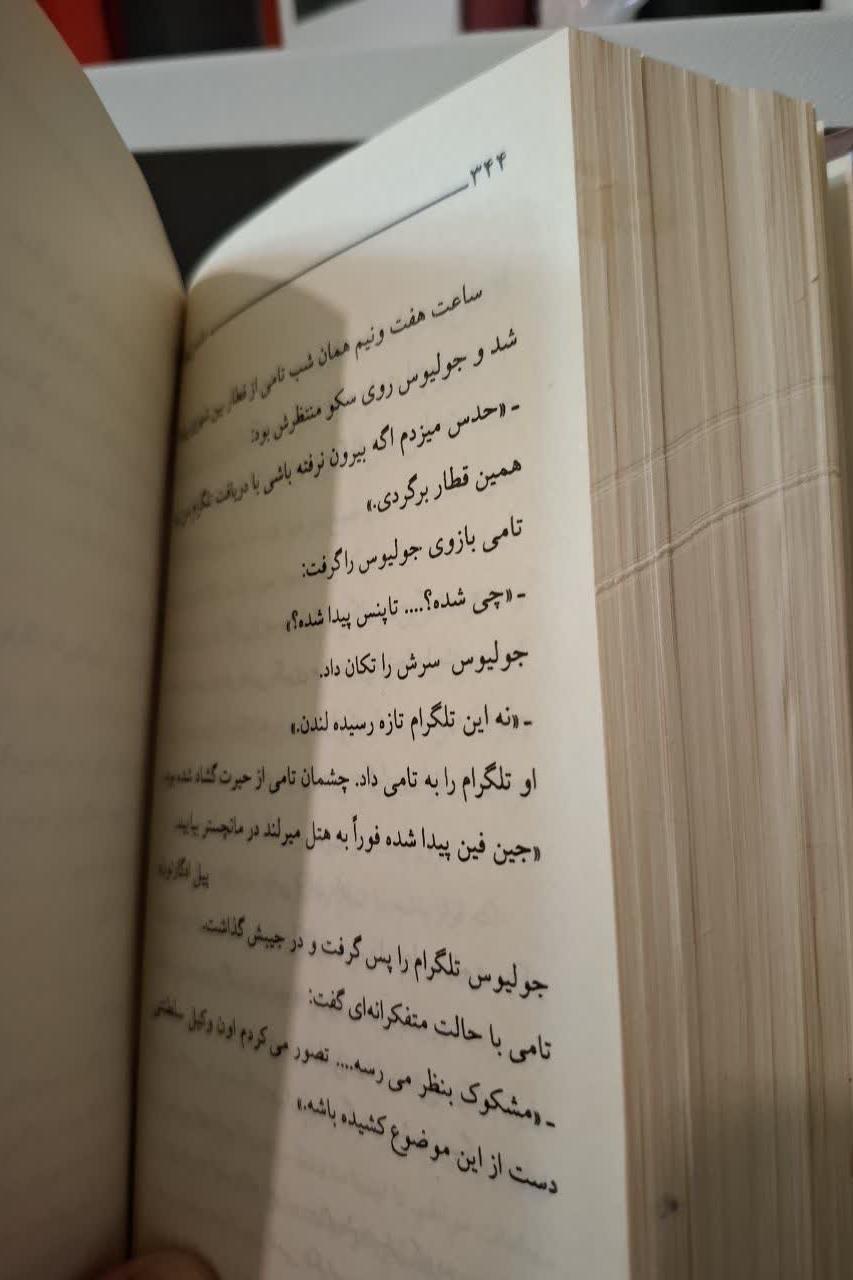 ۳۴۴
ساعت هفت ونیم همان شب تامی از قطار بین
شد و جولیوس روی سکو منتظرش بود:
- «حدس میزدم اگه بیرون نرفته باشی با دریافت تلگرام
همین قطار برگردی.»
تامی بازوی جولیوس راگرفت:
- «چی شده؟.... تاپنس پیدا شده؟»
جولیوس سرش را تکان داد.
- «نه این تلگرام تازه رسیده لندن.»
او تلگرام را به تامی داد. چشمان تامی از حیرت گشاد شده بود.
«جین فین پیدا شده فوراً به هتل میرلند در مانچستر بیایید.
پیل
جولیوس تلگرام را پس گرفت و در جیبش گذاشت.
تامی با حالت متفکرانه‌ای گفت:
- «مشکوک بنظر می رسه.... تصور می‌کردم اون وکیل سلطنتی
دست از این موضوع کشیده باشه.»